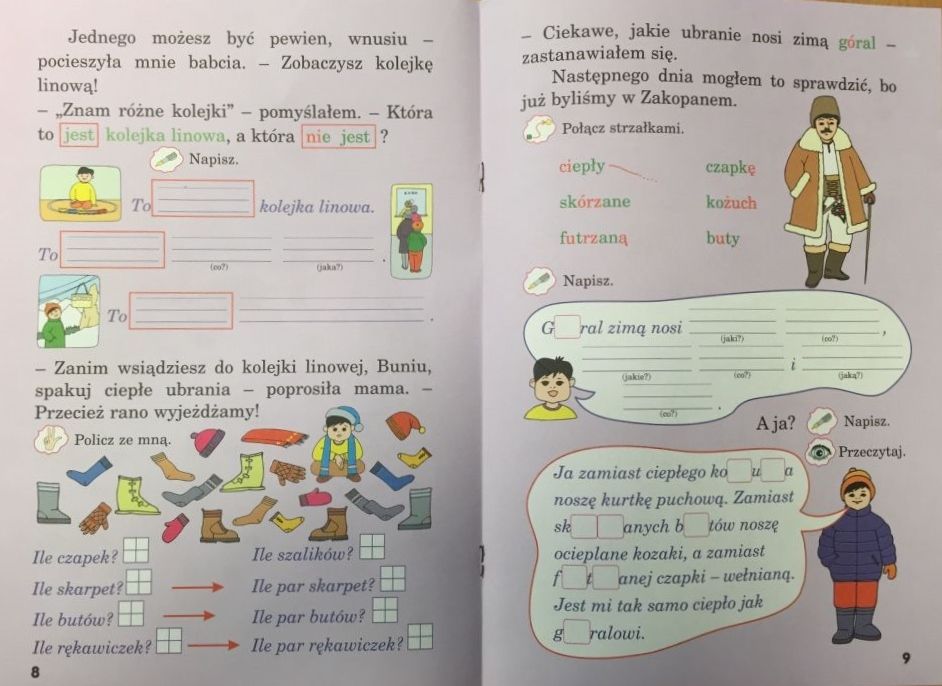 Jednego możesz być pewien, wnusiu –
pocieszyła mnie babcia. – Zobaczysz kolejkę
linową!
– „Znam różne kolejki” – pomyślałem. – Która
to jest kolejka linowa, a która nie jest ?
Napisz.
To kolejka linowa.
To .
(co?) (jaka?)
To .
– Zanim wsiądziesz do kolejki linowej, Buniu,
spakuj ciepłe ubrania – poprosiła mama. –
Przecież rano wyjeżdżamy!
Policz ze mną.
Ile czapek? Ile szalików?
Ile skarpet? Ile par skarpet?
Ile butów? Ile par butów?
Ile rękawiczek? Ile par rękawiczek?
8
– Ciekawe, jakie ubranie nosi zimą góral –
zastanawiałem się.
Następnego dnia mogłem to sprawdzić, bo
już byliśmy w Zakopanem.
Połącz strzałkami.
ciepły czapkę
skórzane kożuch
futrzaną buty
Napisz.
G ral zimą nosi ,
(jaki?) (co?)
i
(jakie?) (co?) (jaką?)
.
(co?)
A ja? Napisz.
Przeczytaj.
Ja zamiast ciepłego ko u a
noszę kurtkę puchową. Zamiast
sk anych b tów noszę
ocieplane kozaki, a zamiast
f t anej czapki – wełnianą.
Jest mi tak samo ciepło jak
g ralowi.
9